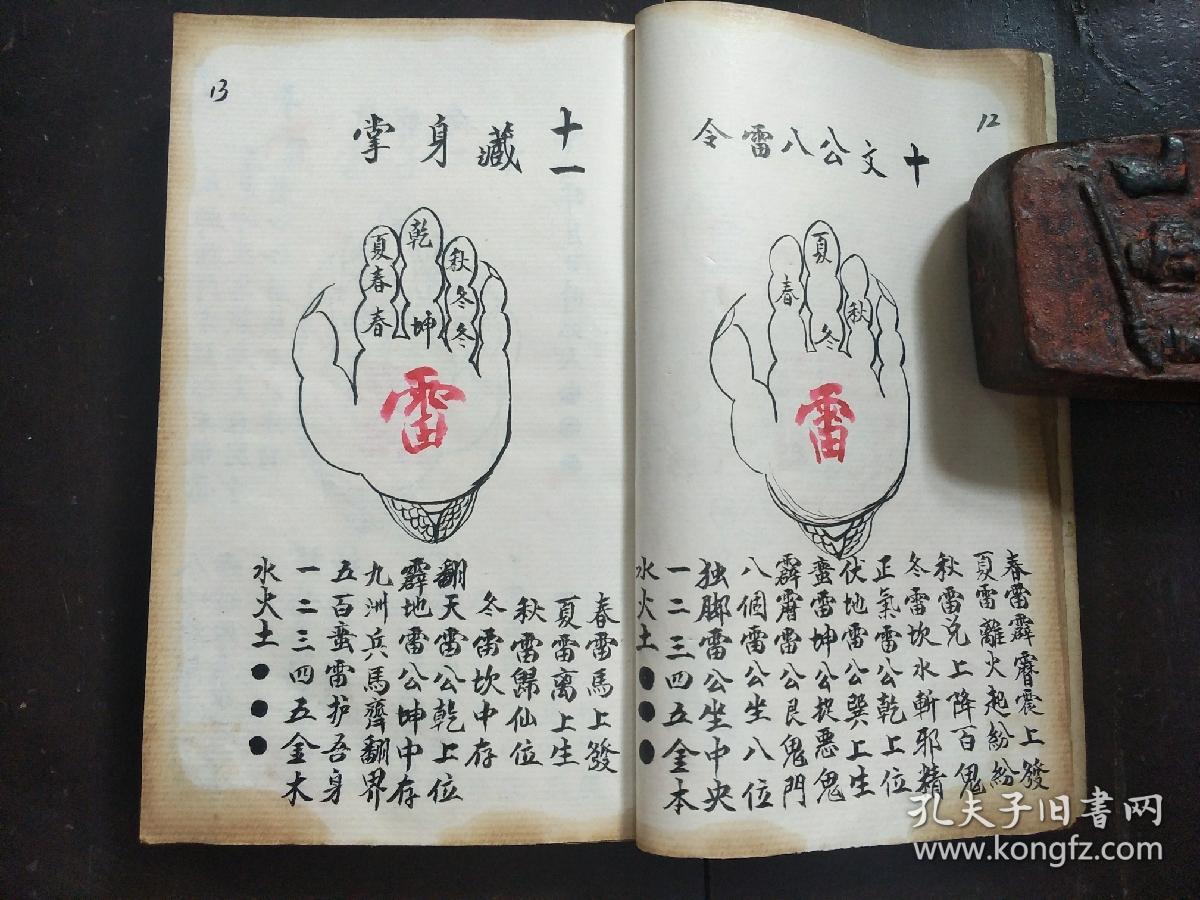 12
十文公八雷令
夏
春
秋
冬
雷
春雷霹靂震上發
夏雷離火起紛紛
秋雷兌上降百鬼
冬雷坎水斬邪精
正氣雷公乾上位
伏地雷公巽上生
蛮雷坤公捉惡鬼
霹靂雷公艮鬼門
八個雷公坐八位
独脚雷公坐中央
一二三四五金本
水火土●●●
13
十一藏身掌
夏春春
乾坤
秋冬冬
雷
春雷馬上發
夏雷离上生
秋雷歸仙位
冬雷坎中存
翻天雷公乾上位
霹地雷公坤中存
九洲兵馬齊翻界
五百蛮雷护吾身
一二三四五金木
水火土●●●
孔夫子旧书网
www.kongfz.com